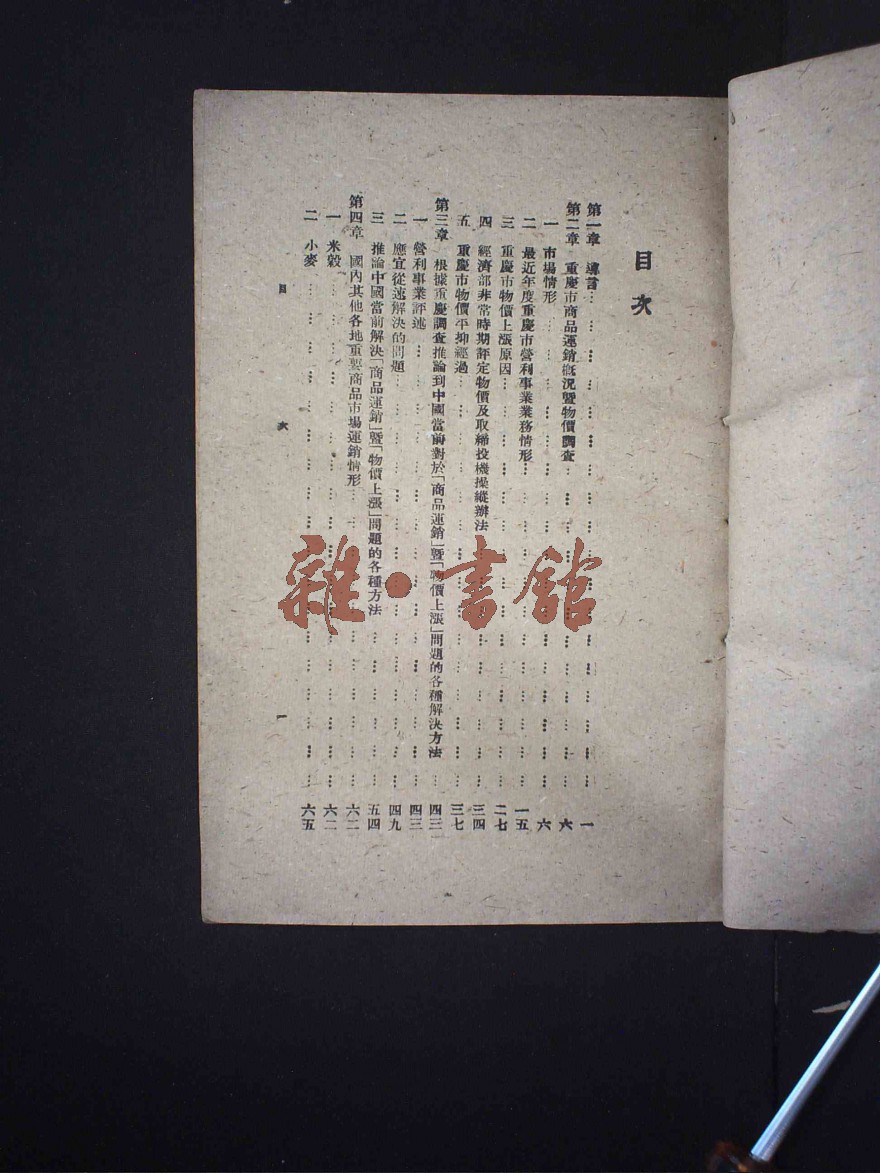 目次
第一章 導言 … 一
第二章 重慶市商品運銷概況暨物價調查 … 六
一 市場情形 … 六
二 最近年度重慶市營利事業業務情形 … 一五
三 重慶市物價上漲原因 … 二七
四 經濟部非常時期評定物價及取締投機操縱辦法 … 三四
五 重慶市物價平抑經過 … 三七
第三章 根據重慶調查推論到中國當前對於「商品運銷」暨「物價上漲」問題的各種解決方法 … 四三
一 營利事業評述 … 四三
二 應宜從速解決的問題 … 四九
三 推論中國當前解決「商品運銷」暨「物價上漲」問題的各種方法 … 五四
第四章 國內其他各地重要商品市場運銷情形 … 六二
一 米穀 … 六二
二 小麥 … 六五
目次 一
雜·書館